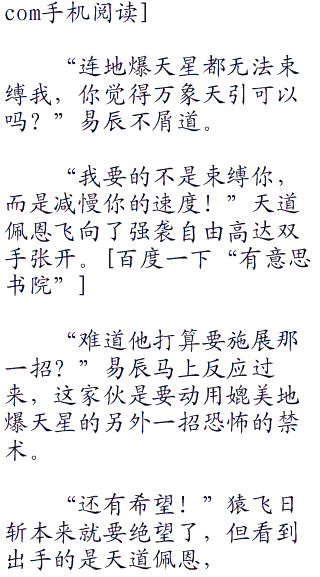 com手机阅读]
“连地爆天星都无法束
缚我，你觉得万象天引可以
吗？”易辰不屑道。
“我要的不是束缚你，
而是减慢你的速度！”天道
佩恩飞向了强袭自由高达双
手张开。[百度一下“有意思
书院”]
“难道他打算要施展那
一招？”易辰马上反应过
来，这家伙是要动用媲美地
爆天星的另外一招恐怖的禁
术。
“还有希望！”猿飞日
斩本来就要绝望了，但看到
出手的是天道佩恩，